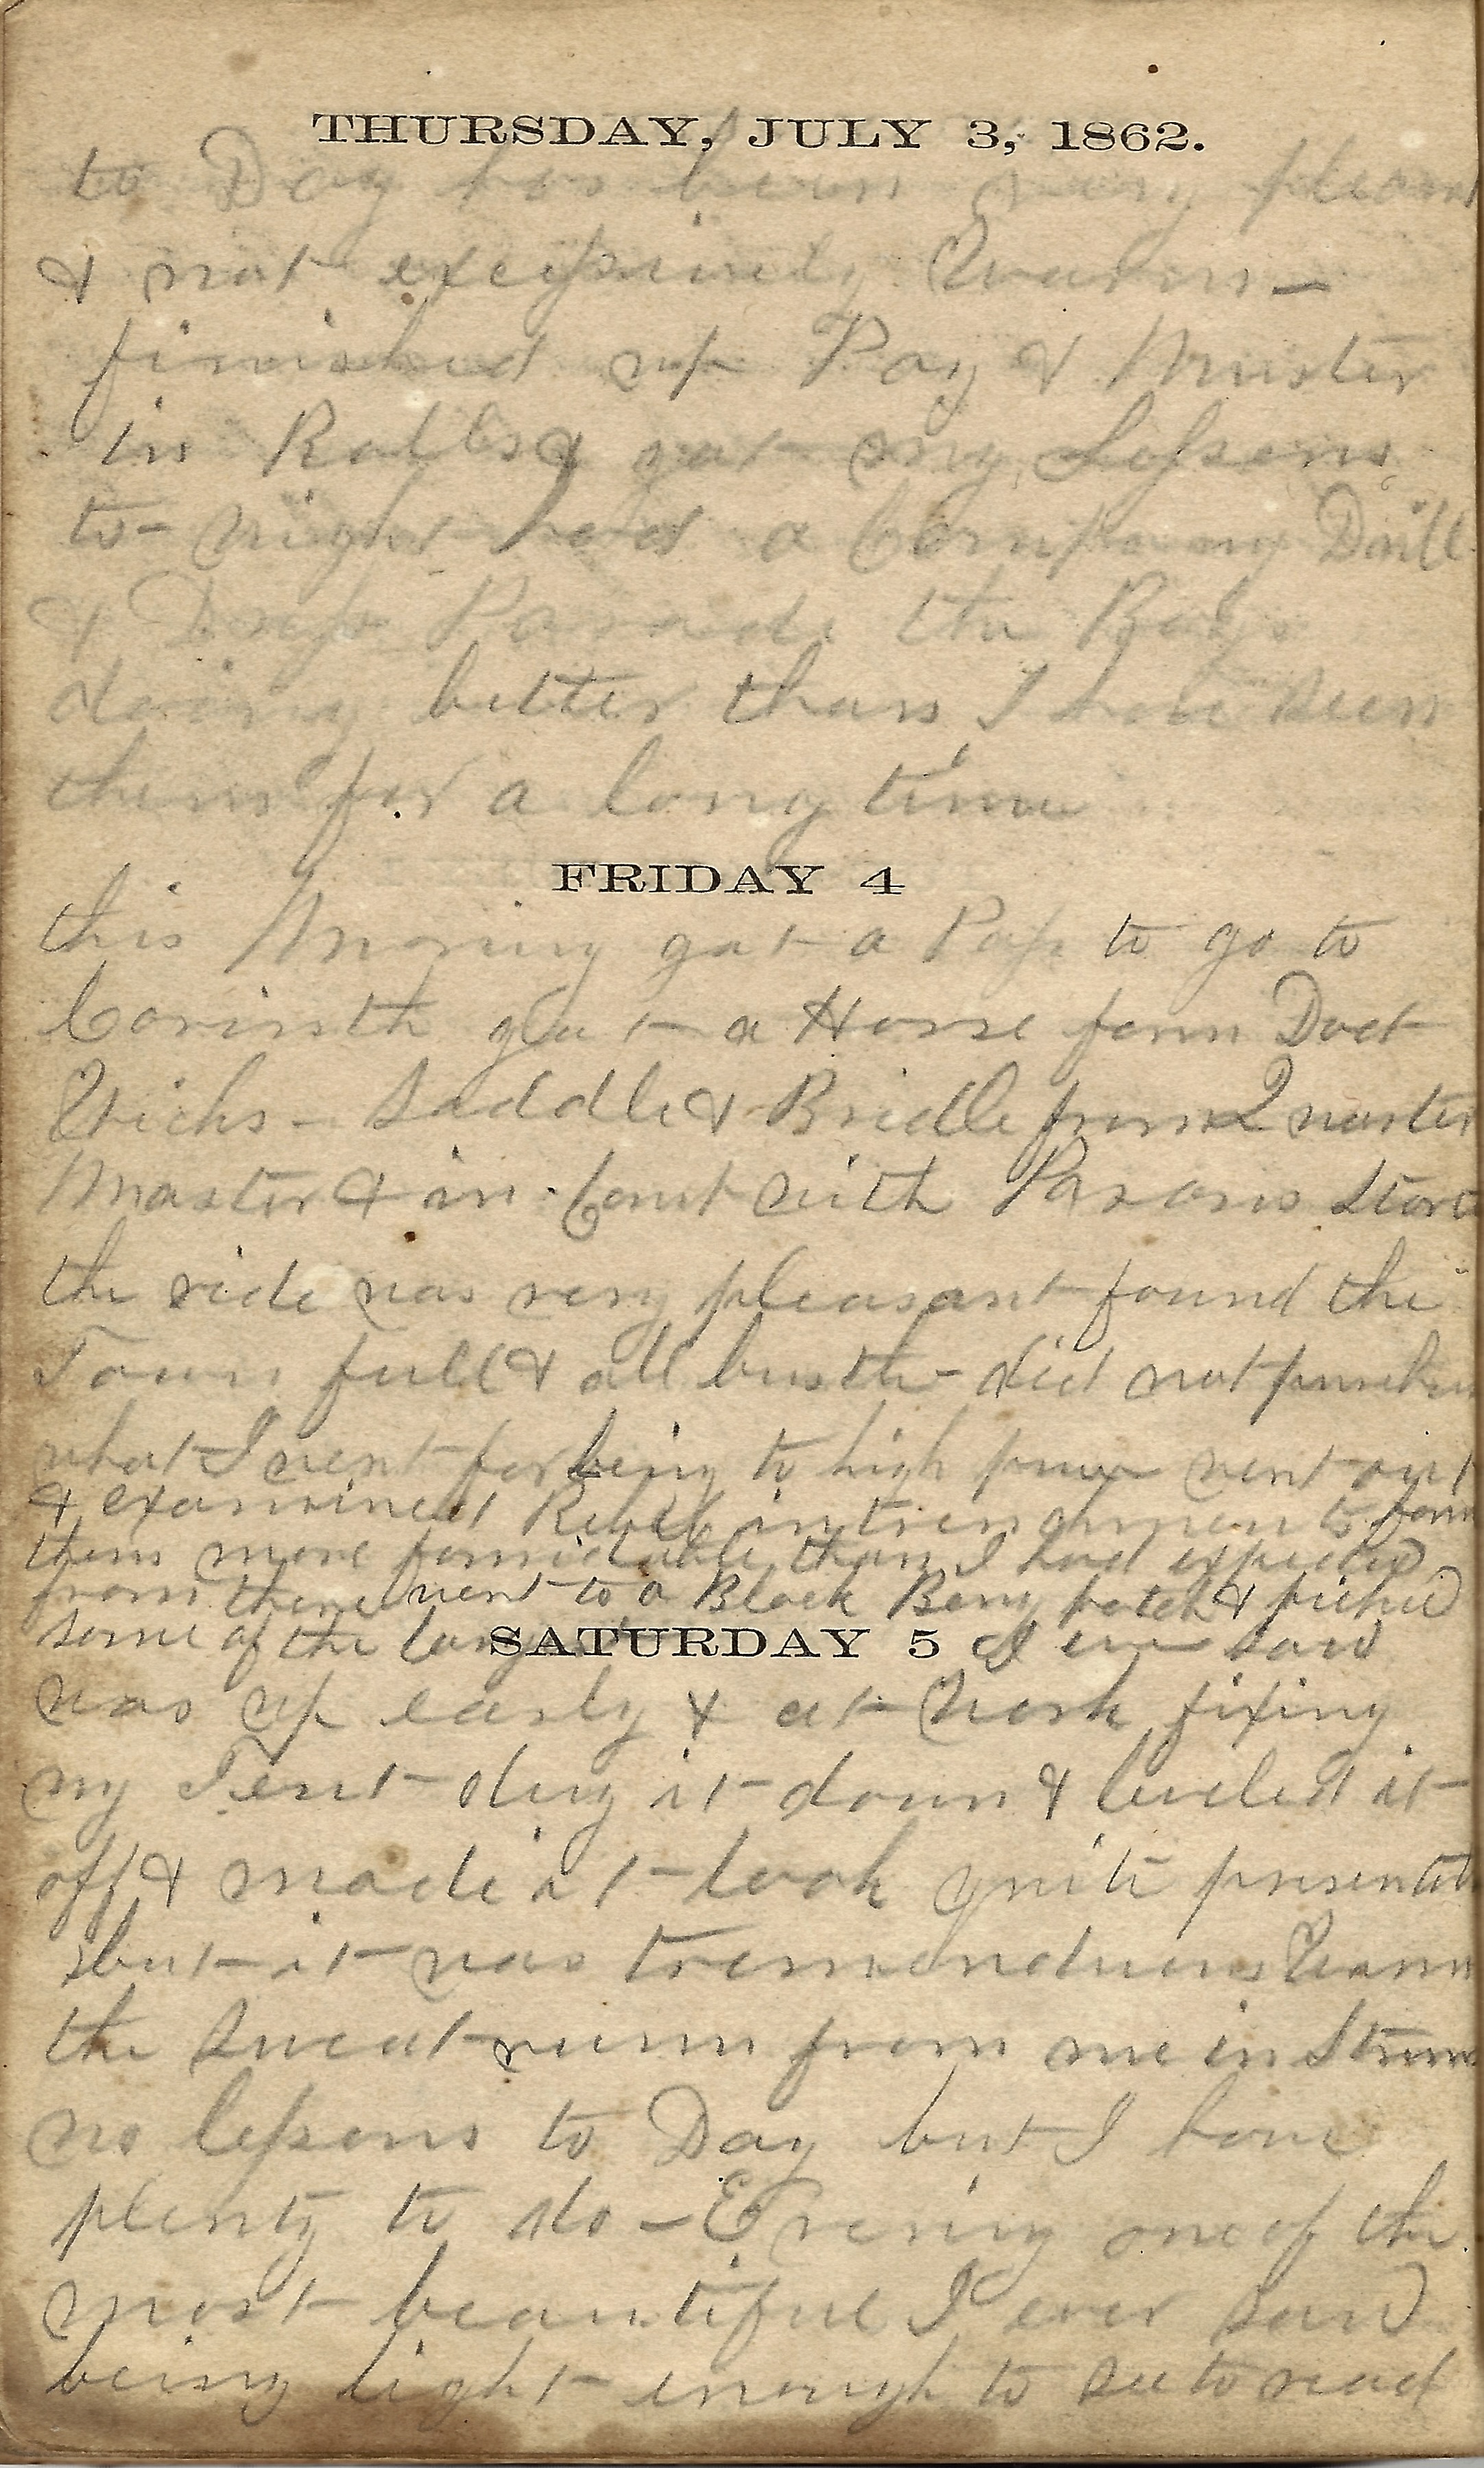 THURSDAY, JULY 3, 1862.
to Day has been very pleasant
& not excessively Warm —
finished up Pay & Muster
in Rolls & got my Lessons
to-night had a Company Drill
& Dress Parade the Boys
doing better than I have seen
them for a long time
FRIDAY 4
this Morning got a Pass to go to
Corinth got a Horse from Doct
Saddle & Bridle from Quarter
Master & in Comt with Parsons Start
the ride was very pleasant found the
Town full & all bustle - did not purchase
what I went for being to high price went out
& examined Rebel intrenchments found
them more formidable than I had expected
from there went to a Black Berry patch & picked
some of the largest I ever saw
SATURDAY 5
was up early & at Work fixing
my Tent dug it down & leveled it
off & made it look quite presentable
but it was tremendous Warm
the sweat runn from me in Streams
no lessons to Day but I have
plenty to do - Evening one of the
most beautiful I ever saw
being light enough to see to read